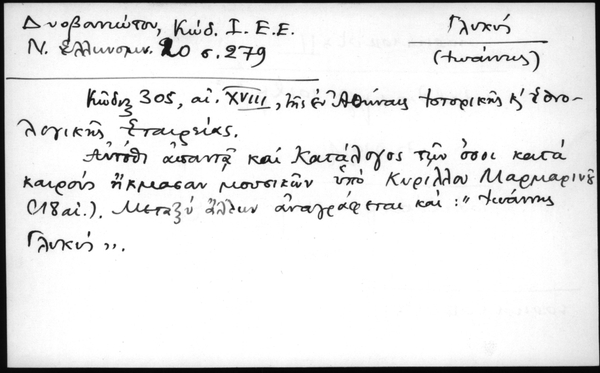 Δυοβουνιώτου, Κώδ. Ι. Ε. Ε.
Ν. Ἑλληνομν. 20 σ. 279
Γλυκύς
(Ἰωάννης)
Κῶδιξ 305, αἰ. XVIII, τῆς ἐν Ἀθήναις Ἱστορικῆς κ' Ἐθνο-
λογικῆς Ἑταιρείας.
Αὐτόθι ἀπαντᾷ καὶ Κατάλογος τῶν ὅσοι κατὰ
καιροὺς ἤκμασαν μουσικῶν ὑπὸ Κυρίλλου Μαρμαρινοῦ
(18 αἰ.). Μεταξὺ ἄλλων ἀναγράφεται καὶ: "Ἰωάννης
Γλυκύς".